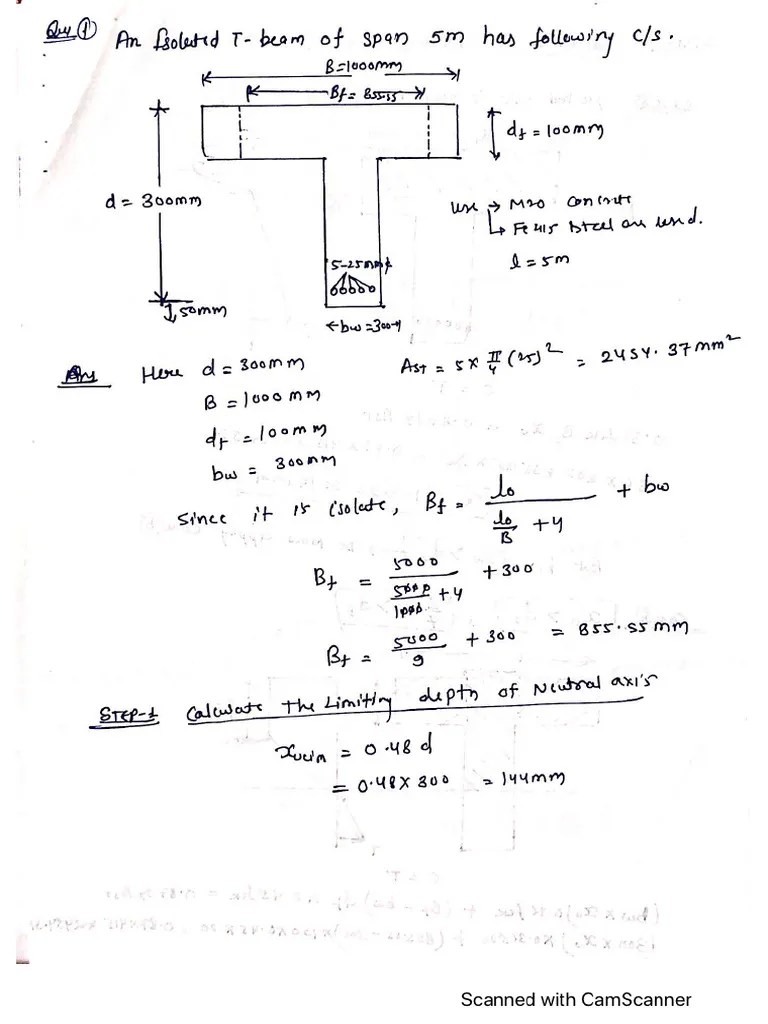 Que ① An Isolated T-beam of span 5m has following c/s.
B=1000mm
Bf= 855.55
df = 100mm
d= 300mm
Use → M20 Concrete
↳ Fe 415 Steel are used.
l = 5m
5-25mmϕ
50mm
bw =300
Ans Here d = 300mm Ast = 5 x π/4 (25)² = 2454.37mm²
B = 1000mm
df = 100mm
bw = 300mm
Since it is isolate, Bf = lo / (lo/B + 4) + bw
Bf = 5000 / (5000/1000 + 4) + 300
Bf = 5000/9 + 300 = 855.55 mm
STEP-1 Calculate The Limiting depth of Neutral axis
= 0.48 d
= 0.48 X 300 = 144mm
Scanned with CamScanner